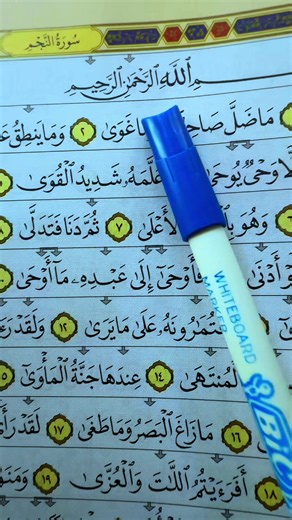 سُورَةُ النَّجْمِ
ٱللَّهِ ٱلرَّحْمَٰنِ ٱلرَّحِيمِ
مَا ضَلَّ غَوَىٰ ٢ وَمَا يَنطِقُ
وَحْيٌ يُوحَىٰ عَلَّمَهُۥ شَدِيدُ ٱلْقُوَىٰ ٥
٦ وَهُوَ ٱلْأَعْلَىٰ ٧ ثُمَّ دَنَا فَتَدَلَّىٰ ٨
أَدْنَىٰ فَأَوْحَىٰ إِلَىٰ عَبْدِهِۦ مَآ أَوْحَىٰ
عَلَىٰ مَا يَرَىٰ ١٢ وَلَقَدْ
ٱلْمُنتَهَىٰ ١٤ عِندَهَا جَنَّةُ ٱلْمَأْوَىٰ ١٥
١٦ مَا زَاغَ ٱلْبَصَرُ وَمَا طَغَىٰ ١٧ لَقَدْ
١٨ أَفَرَءَيْتُمُ ٱللَّٰتَ وَٱلْعُزَّىٰ ١٩
WHITEBOARD
MARKER
BIC